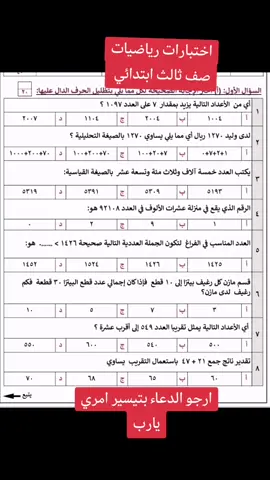 اختبارات رياضيات
صف ثالث ابتدائي
السؤال الأول: (أ) اختر الإجابة الصحيحة لكل مما يلي بتظليل الحرف الدال عليها:
٢٠
١
أي من الأعداد التالية يزيد بمقدار ٧ على العدد ١٠٩٧ ؟
أ ١٠٠٤ ب ٢٠٠٤ ج ١١٠٤ د ٢٠٠٧
٢
لدى وليد ١٢٧٠ ريال أي مما يلي يساوي ١٢٧٠ بالصيغة التحليلية ؟
١+٢+٧ ب ١٠٠+٢٠+٧ ج ١٠٠+٢٠٠+٧٠ د ١٠٠٠+٢٠٠+٧٠
٣
يكتب العدد خمسة آلاف وثلاث مئة وتسعة عشر بالصيغة القياسية:
أ ٥١٩٣ ب ٥٣٠٩ ج ٥٣٩١ د ٥٣١٩
٤
الرقم الذي يقع في منزلة عشرات الألوف في العدد ٩٢١٠٨ هو:
أ ١ ب ٩ ج ٢ د ٠
٥
العدد المناسب في الفراغ لتكون الجملة العددية التالية صحيحة ١٤٢٦ > ....... هو:
أ ١٤٢٥ ب ١٤٢٦ ج ١٥٢٤ د ١٤٥٢
٦
قسم مازن كل رغيف بيتزا إلى ١٠ قطع فإذا كان إجمالي عدد قطع البيتزا ٣٠ قطعة فكم رغيف لدى مازن؟
أ ٣ ب ٧ ج ٥ د ١٠
٧
أي الأعداد التالية يمثل تقريبا العدد ٥٤٩ إلى أقرب عشرة ؟
أ ٥٠٠ ب ٥٤٠ ج ٦٠٠ د ٥٥٠
٨
تقدير ناتج جمع ٢١ + ٤٧ باستعمال التقريب يساوي
أ ٦٠ ب ٦٥ ج ٦٨ د ٧٠
يتبع
ارجو الدعاء بتيسير امري
يارب